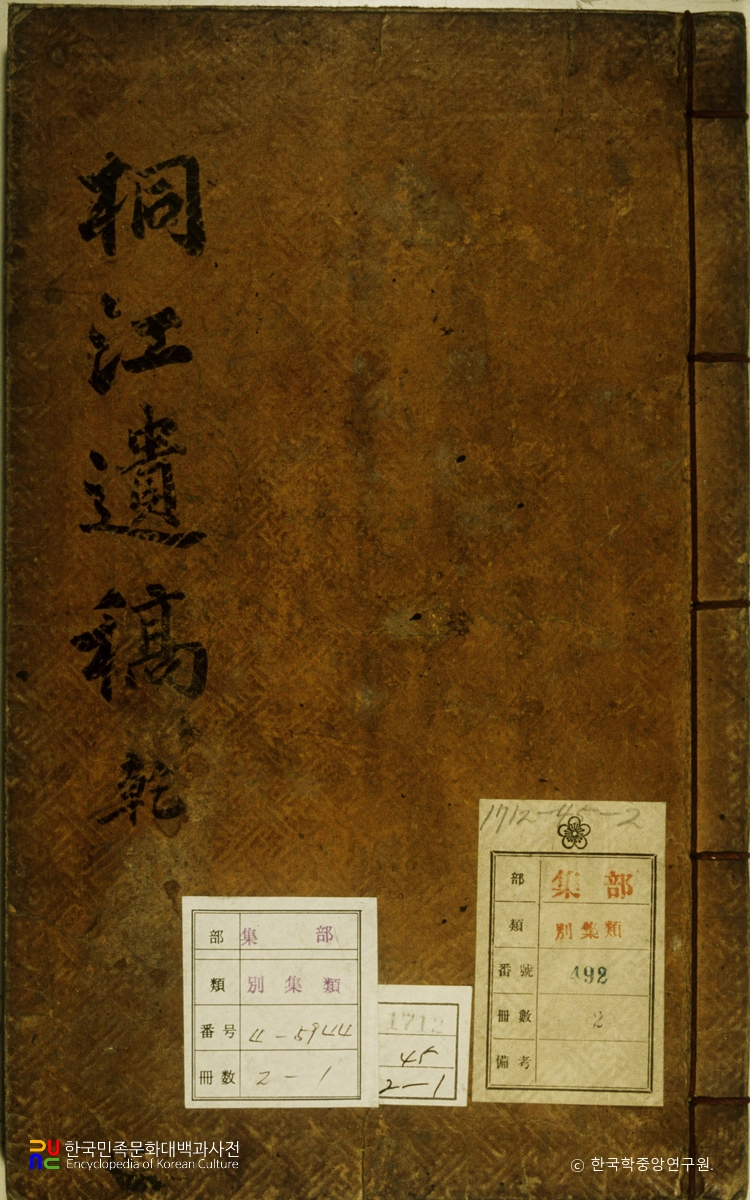 桐江遺稿 乾
1712-45-2
部 集部
類 別集類
番號 492
冊數 2
備考
部 集部
類 別集類
番号 4-5944
冊数 2-1
1712
45
2-1
한국민족문화대백과사전
Encyclopedia of Korean Culture
© 한국학중앙연구원.